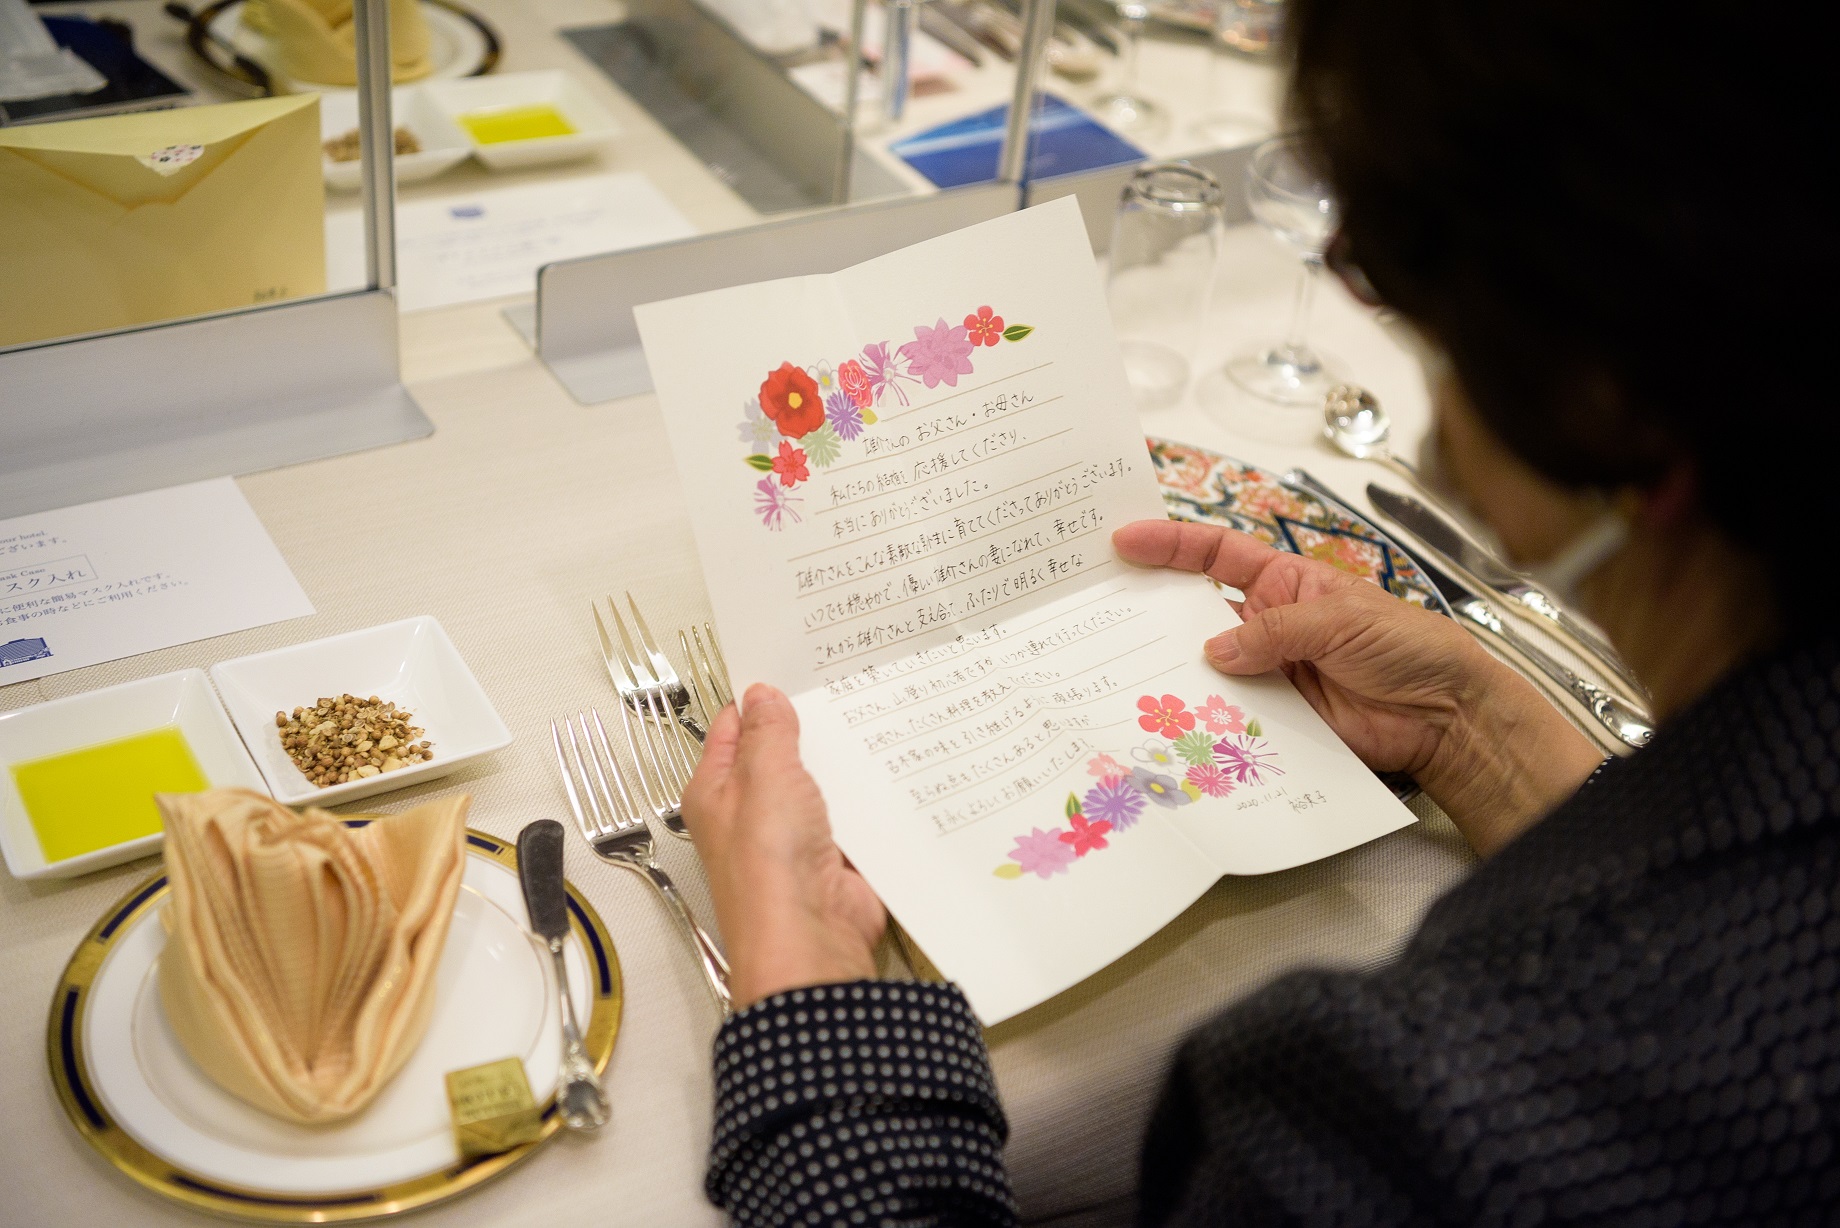 雄介さんの お父さん・お母さん
私たちの結婚を応援してくださり、
本当にありがとうございました。
雄介さんをこんな素敵な男性に育ててくださってありがとうございます。
いつでも穏やかで、優しい雄介さんの妻になれて、幸せです。
これから雄介さんと支え合って、ふたりで明るく幸せな
家庭を築いていきたいと思います。
お父さん、山登り初心者ですが、いつか連れて行ってください。
お母さん、たくさん料理を教えてください。
家の味を引き継げるように頑張ります。
至らぬ点もたくさんあると思いますが、
末永くよろしくお願いいたします。
2020.11.21
our hotel.
ございます。
ask Case
スク入れ
に便利な簡易マスク入れです。
食事の時などにご利用ください。